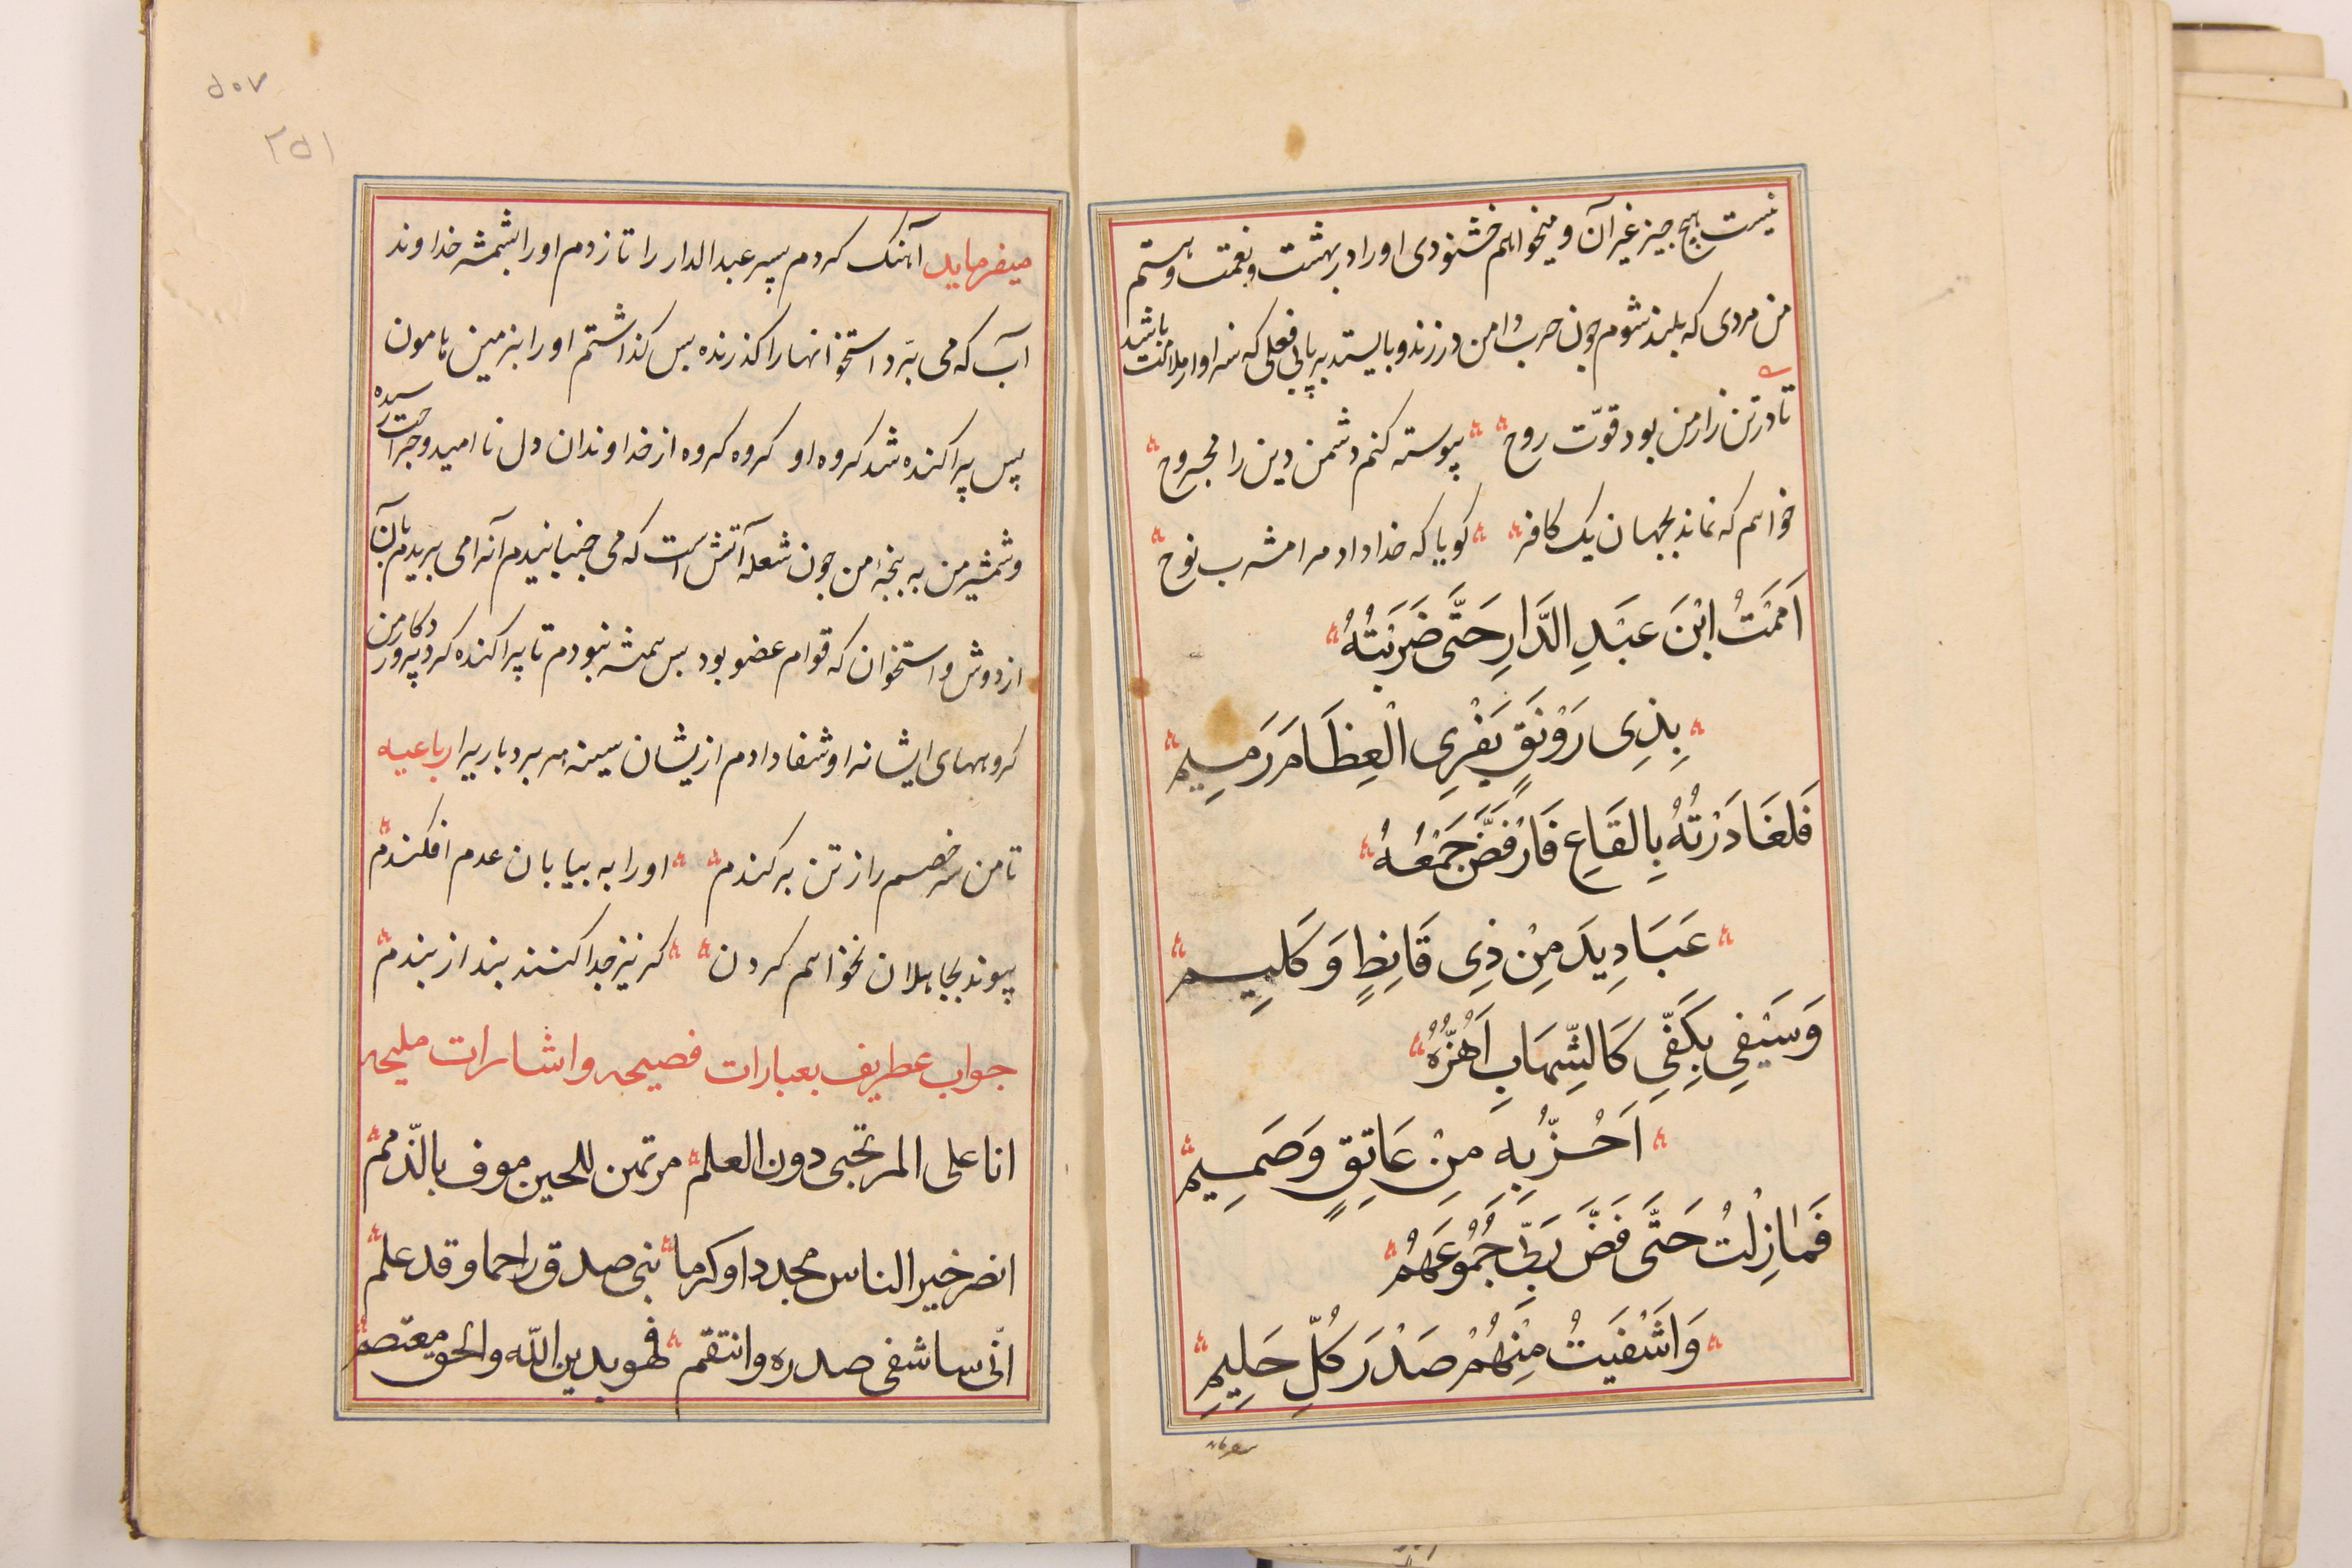 نیست هیچ چیز غیر آن و میخواهم خشنودی او را در بهشت و نعمت و هستم
من مردی که بلند شوم چون حرب دامن در زند و بایستد بر پای بی فعلی که سزاوار ملامت باشد
تا در تن زار من بود قوّت روح پیوسته کنم دشمن دین را مجروح
خواهم که نماند بجهان یک کافر کویا که خدا داد مرا مشرب نوح
اَمَمْتُ ابْنَ عَبْدِ الدَّارِ حَتَّى ضَرَبْتُهُ
بِذِى رَوْنَقٍ يَفْرِى الْعِظَامَ رَمِيمٍ
فَلغَادَرْتُهُ بِالقَاعِ فَارْفَضَّ جَمْعُهُ
عَبَادِيدَ مِنْ ذِى قَانِطٍ وَكَلِيمِ
وَسَيْفِى بِكَفِّى كَالشِّهَابِ اَهُزُّهُ
اَحُزُّ بِهِ مِنْ عَاتِقٍ وَصَمِيمِ
فَمَازِلْتُ حَتَّى فَضَّ رَبِّى جُمُوعَهُمْ
وَاَشْفَيْتُ مِنْهُمْ صَدْرَ كُلِّ حَلِيمِ
میفرماید آهنک کردم پسر عبد الدار را تا زدم او را بشمشیر خداوند
آب که می برّد استخوانها را کذرنده پس کذاشتم او را بزمین هامون
پس پراکنده شد کروه او کروه کروه از خداوندان دل ناامید و جراحت رسیده
و شمشیر من به پنجۀ من چون شعلۀ آتش است که می جنبانیدم آنرا می بریدم بآن
از دوش و استخوان که قوام عضو بود پس همیشه نبودم تا پراکنده کرد پرورد کار من
کروههای ایشانرا و شفا دادم از یشان سینه هر بردباریرا رباعیه
تا من سر خصم را ز تن برکندم او را به بیابان عدم افکندم
پیوند بجاهلان نخواهم کردن کر نیز جدا کنند بند از بندم
جواب عطریف بعبارات فصیحه و اشارات ملیحه
انا علی المرتجی دون العلم مرتهن للحین موف بالذّمم
انصر خیر الناس مجدداً و کرما نبی صدق راحما و قد علم
انّی ساشفی صدره و انتقم فهو بدین اللّه والحق معتصم
۵۰۷
۲۵۱